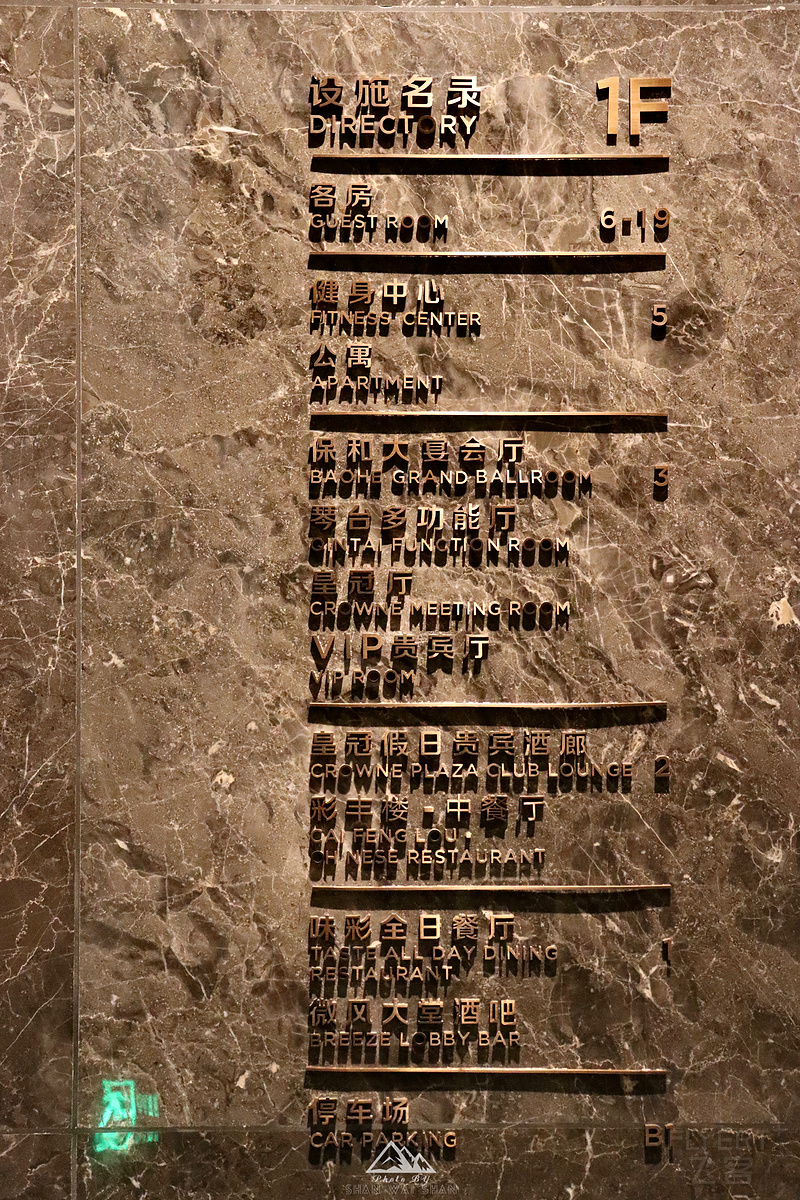 设施名录 1F
DIRECTORY
客房
GUEST ROOM 6-19
健身中心
FITNESS CENTER 5
公寓
APARTMENT
保和大宴会厅
BAOHE GRAND BALLROOM 3
琴台多功能厅
QINTAI FUNCTION ROOM
皇冠厅
CROWNE MEETING ROOM
VIP贵宾厅
VIP ROOM
皇冠假日贵宾酒廊
CROWNE PLAZA CLUB LOUNGE 2
彩丰楼·中餐厅
CAI FENG LOU·
CHINESE RESTAURANT
味彩全日餐厅
TASTE ALL DAY DINING 1
RESTAURANT
微风大堂酒吧
BREEZE LOBBY BAR
停车场
CAR PARKING B1
Photo BY
SHAN WAI SHAN
FLYERT